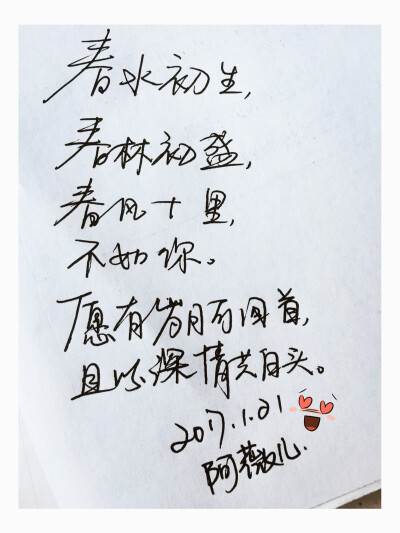 春水初生，
春林初盛，
春风十里，
不如你。
愿有岁月可回首，
且以深情共白头。
2017.1.21
阿薇儿.